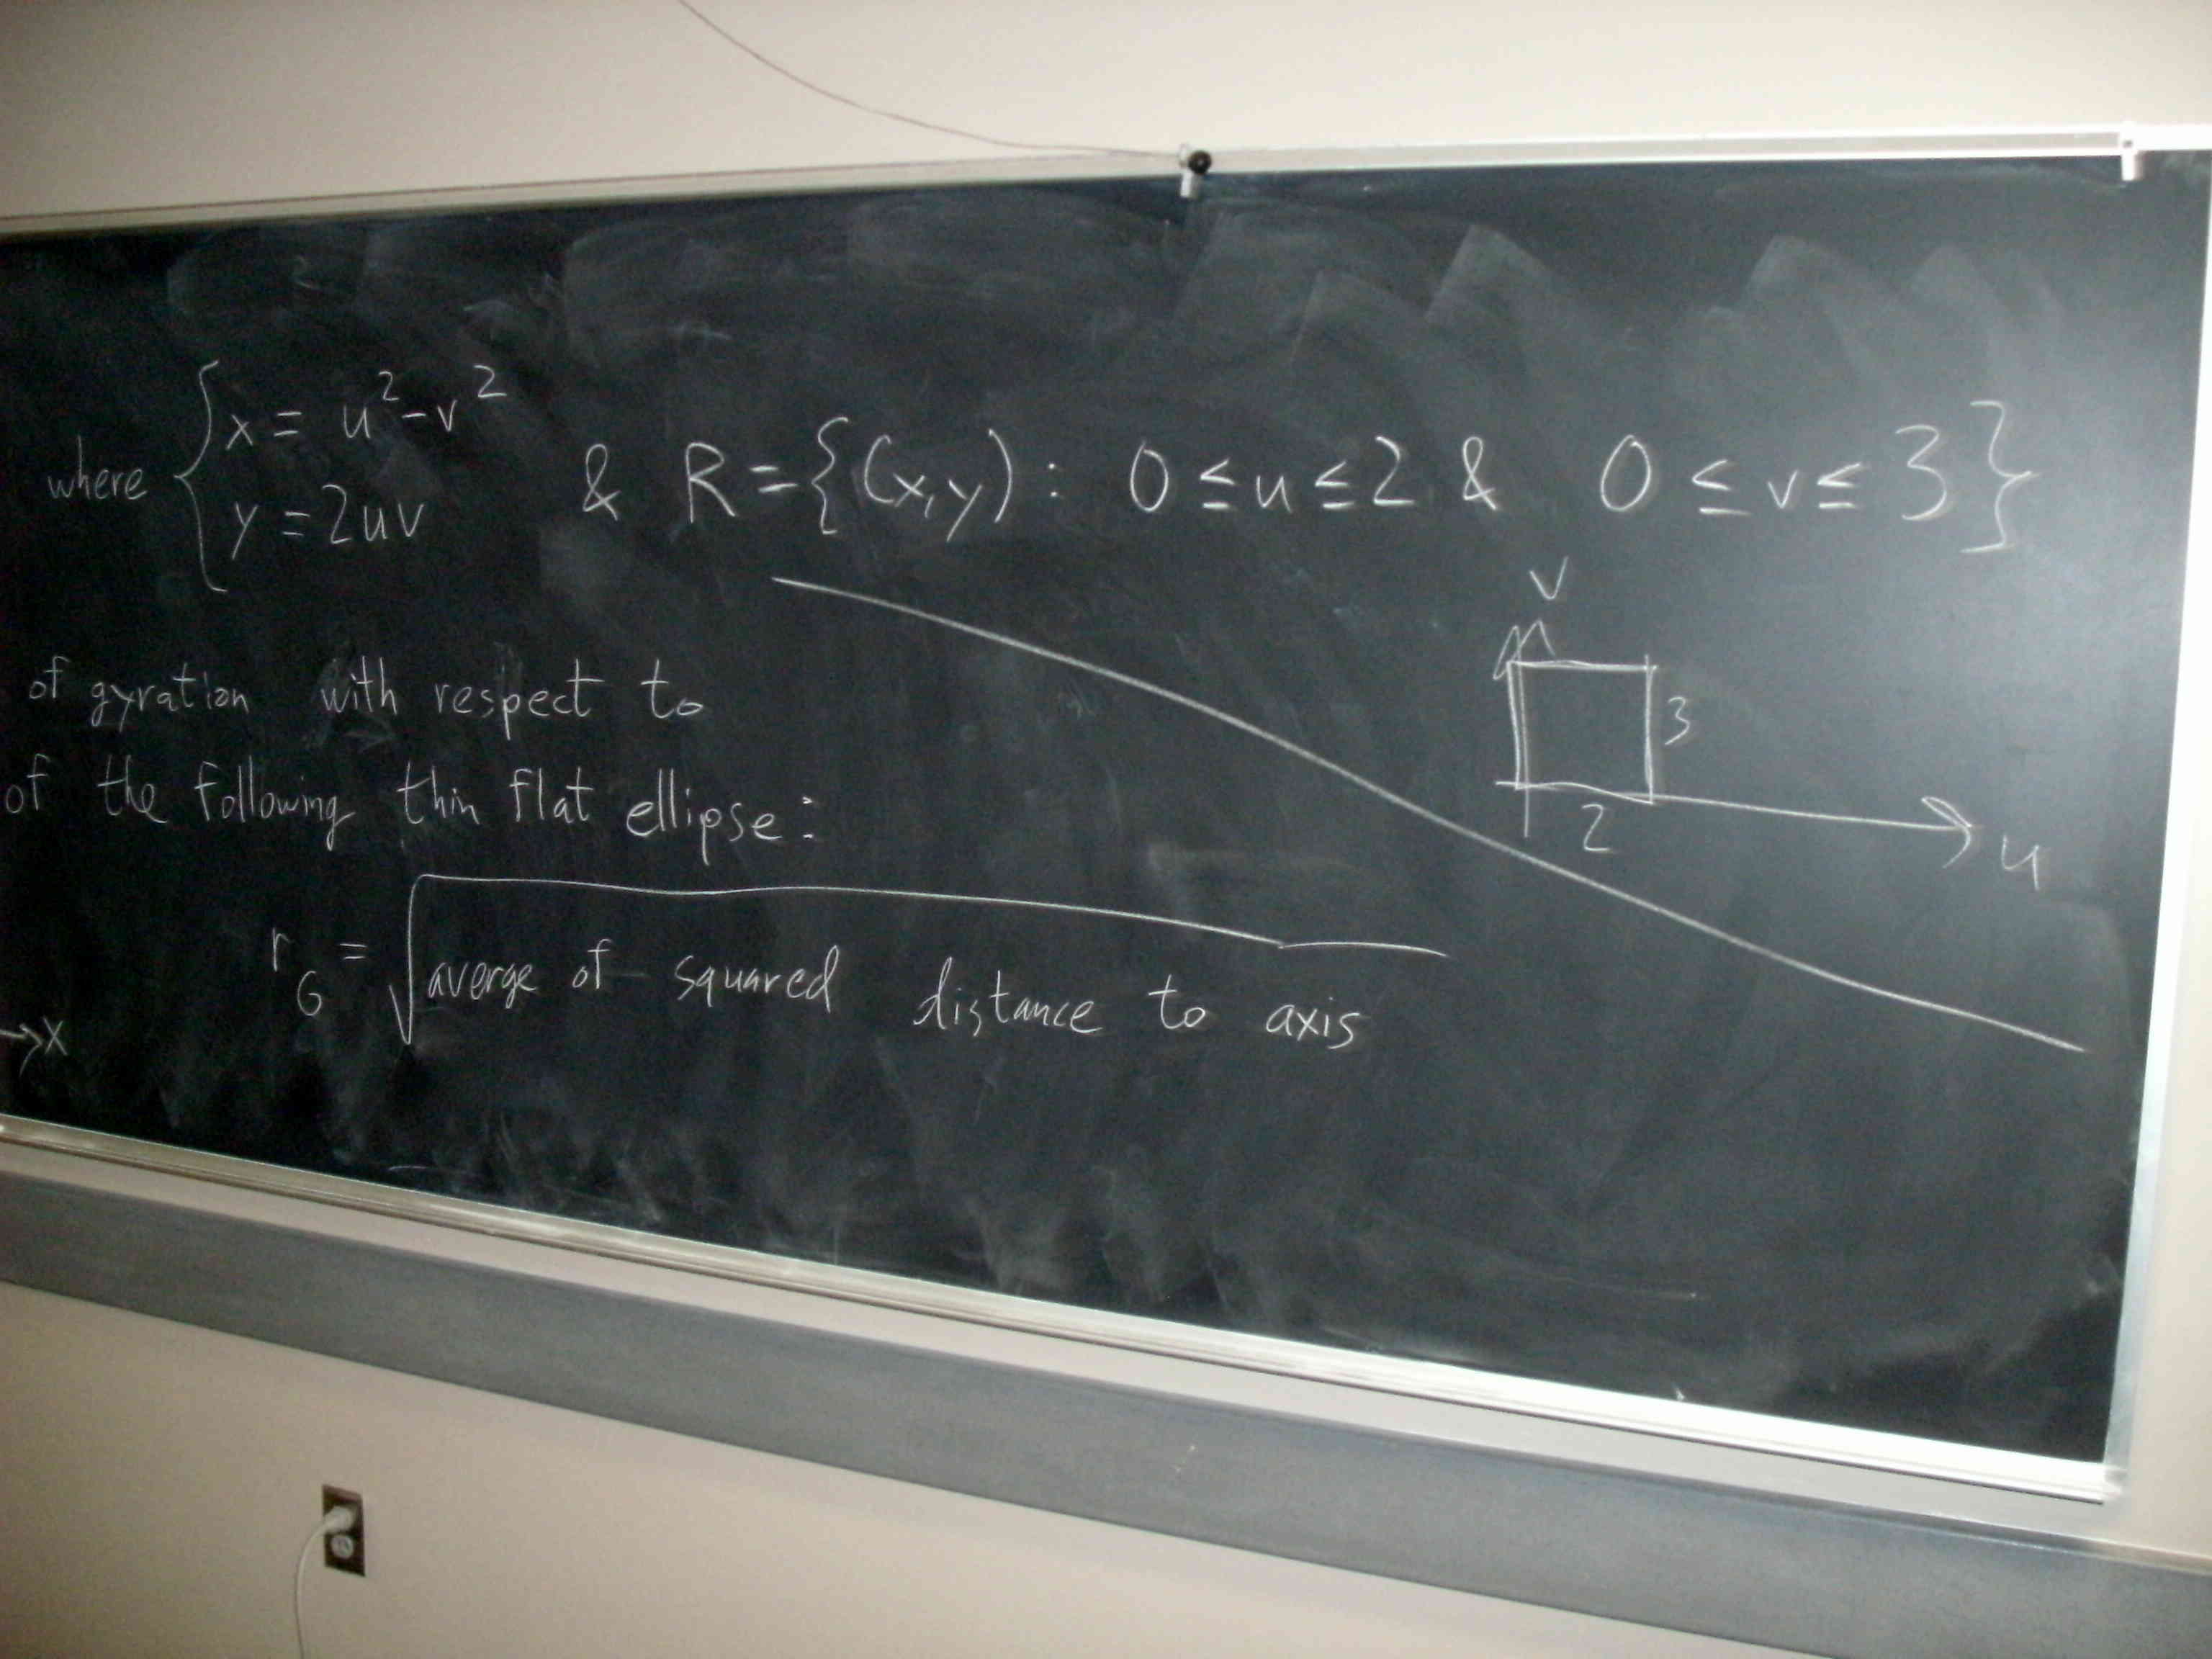 where { x = u² - v²
y = 2uv
& R = {(x,y) : 0 ≤ u ≤ 2 & 0 ≤ v ≤ 3}
v
3
2
u
of gyration with respect to
of the following thin flat ellipse:
r_G = √averge of squared distance to axis
→x